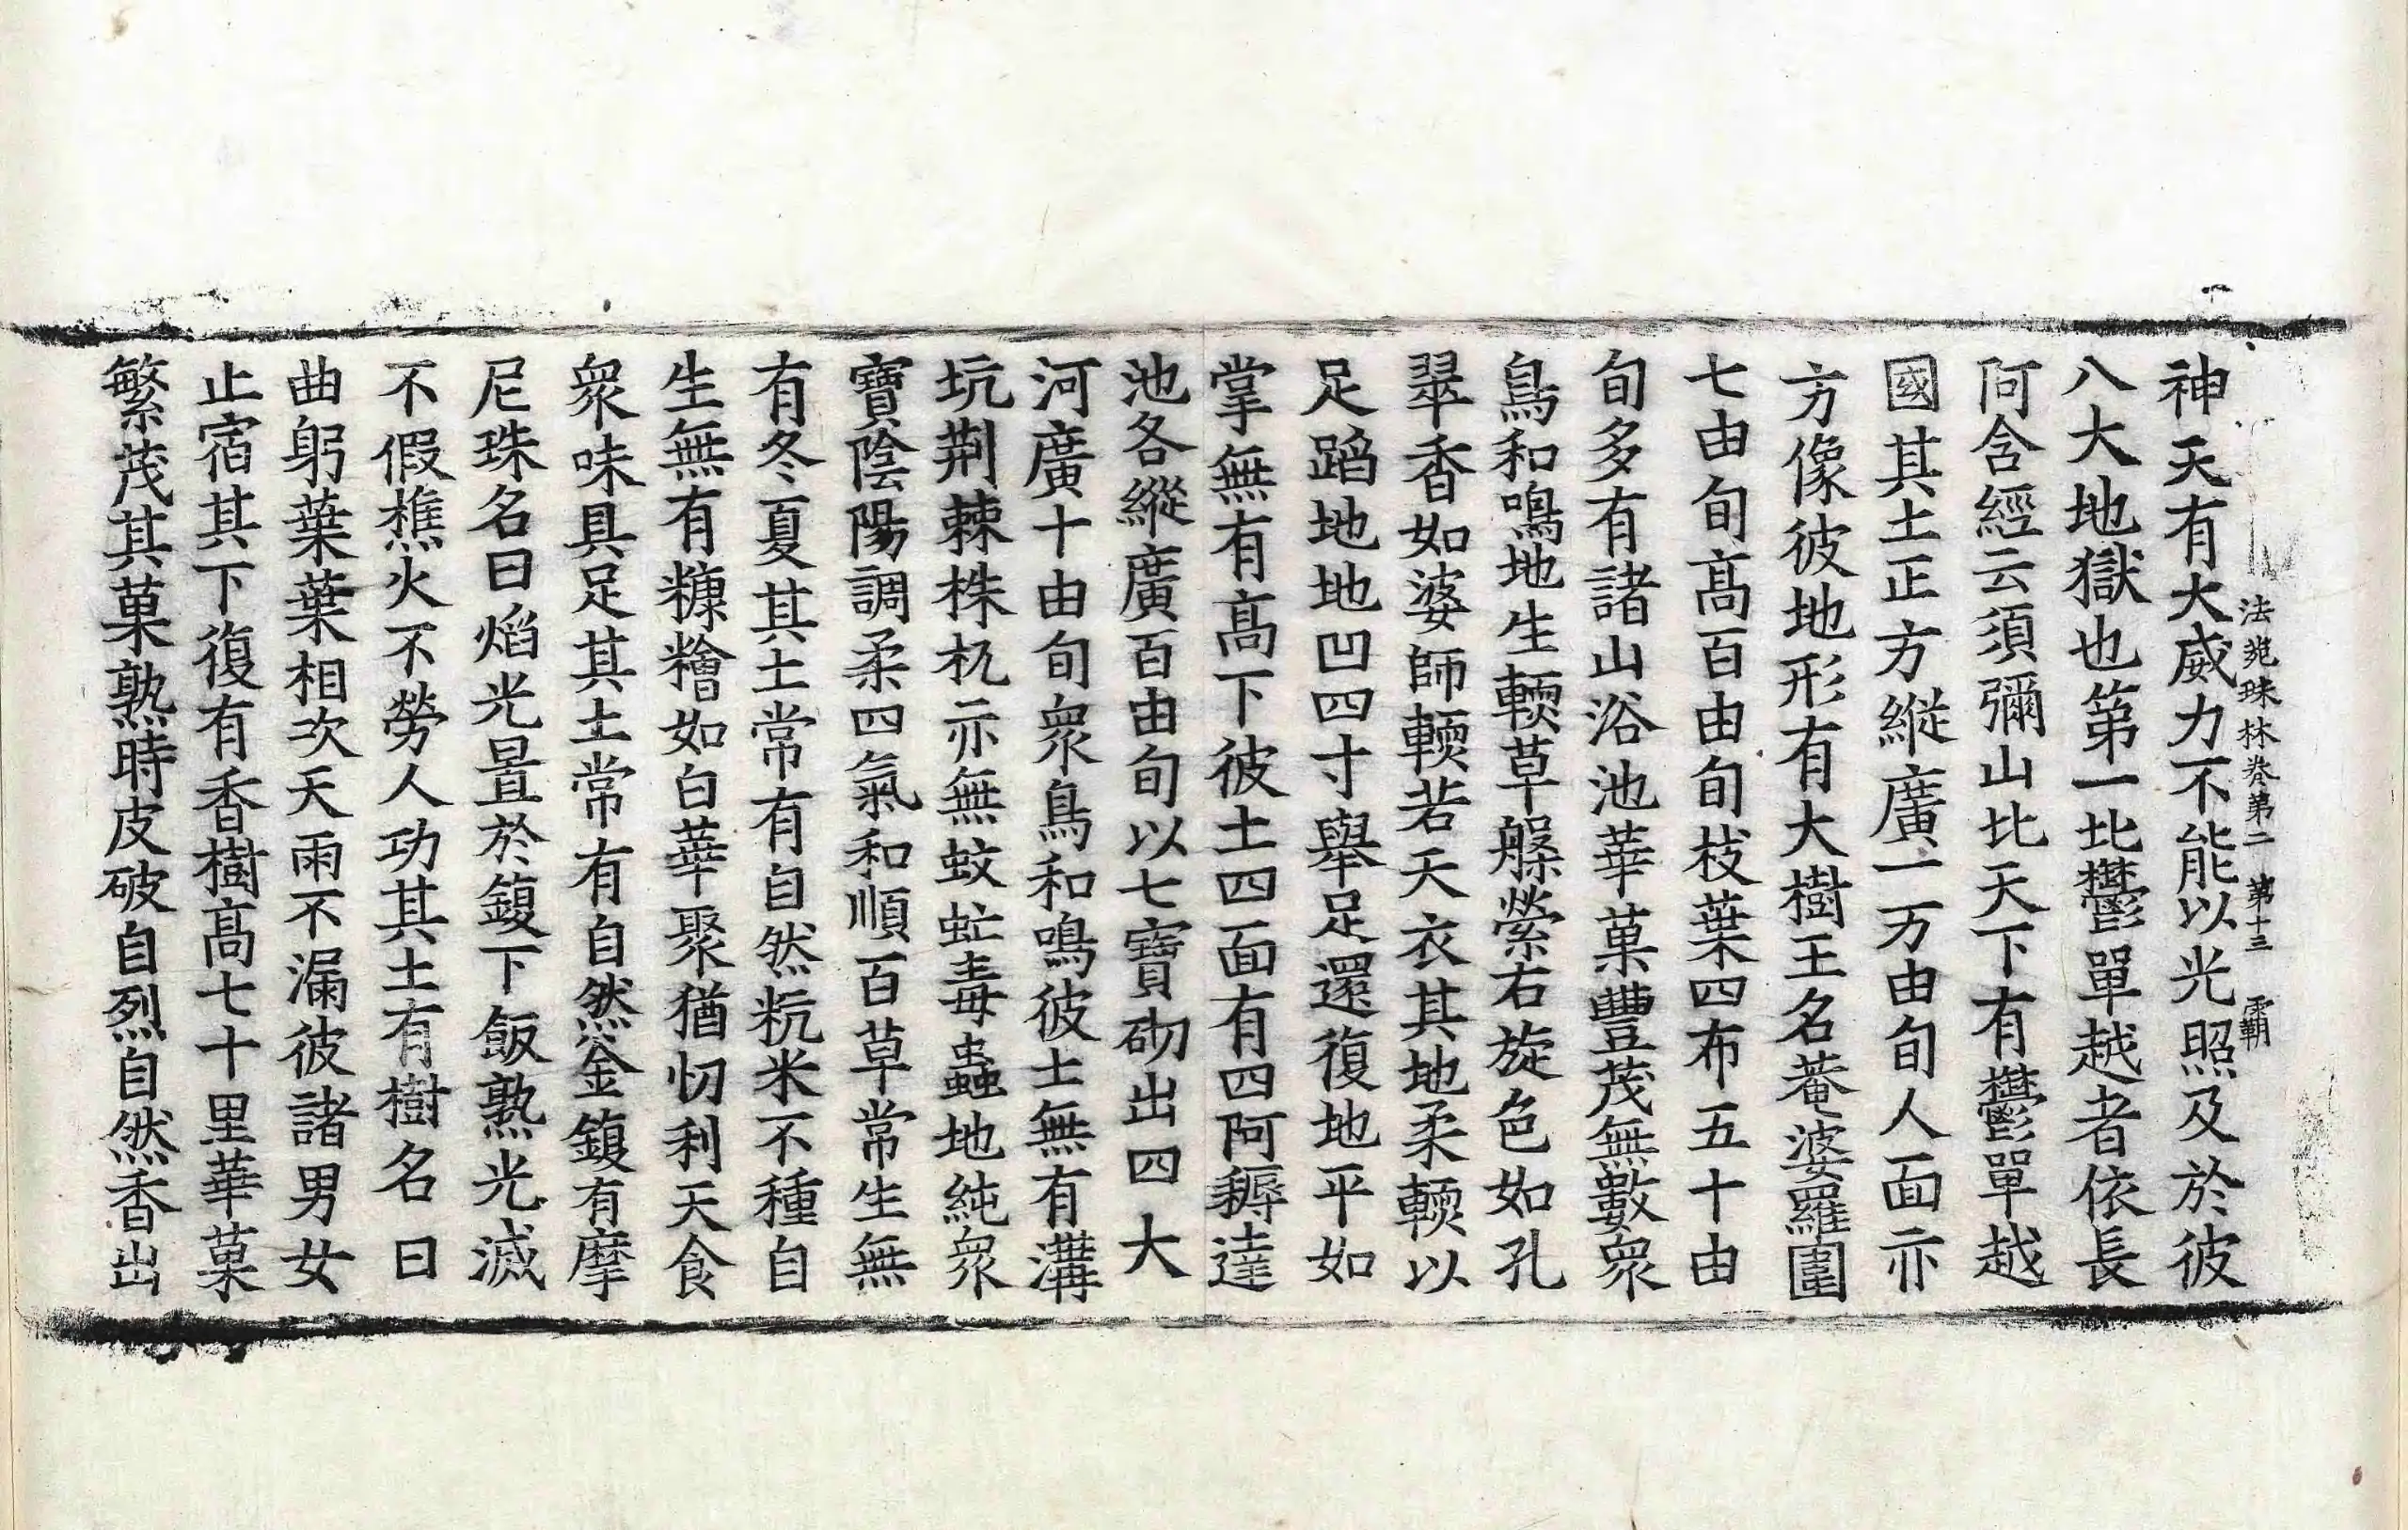 法苑珠林卷第二 第十三 覇
神天有大威力不能以光照及於彼
八大地獄也第一北鬱單越者依長
阿含經云須彌山北天下有鬱單越
國其土正方縱廣一万由旬人面亦
方像彼地形有大樹王名菴婆羅圍
七由旬高百由旬枝葉四布五十由
旬多有諸山浴池華菓豐茂無數衆
鳥和鳴地生輭草槃縈右旋色如孔
翠香如婆師輭若天衣其地柔輭以
足蹈地地凹四寸舉足還復地平如
掌無有高下彼土四面有四阿耨達
池各縱廣百由旬以七寶砌出四大
河廣十由旬衆鳥和鳴彼土無有溝
坑荆棘株杌亦無蚊虻毒蟲地純衆
寶陰陽調柔四氣和順百草常生無
有冬夏其土常有自然粇米不種自
生無有糠糩如白華聚猶忉利天食
衆味具足其土常有自然釡鍑有摩
尼珠名曰焰光置於鍑下飯熟光滅
不假樵火不勞人功其土有樹名曰
曲躬葉葉相次天雨不漏彼諸男女
止宿其下復有香樹高七十里華菓
繁茂其菓熟時皮破自烈自然香出